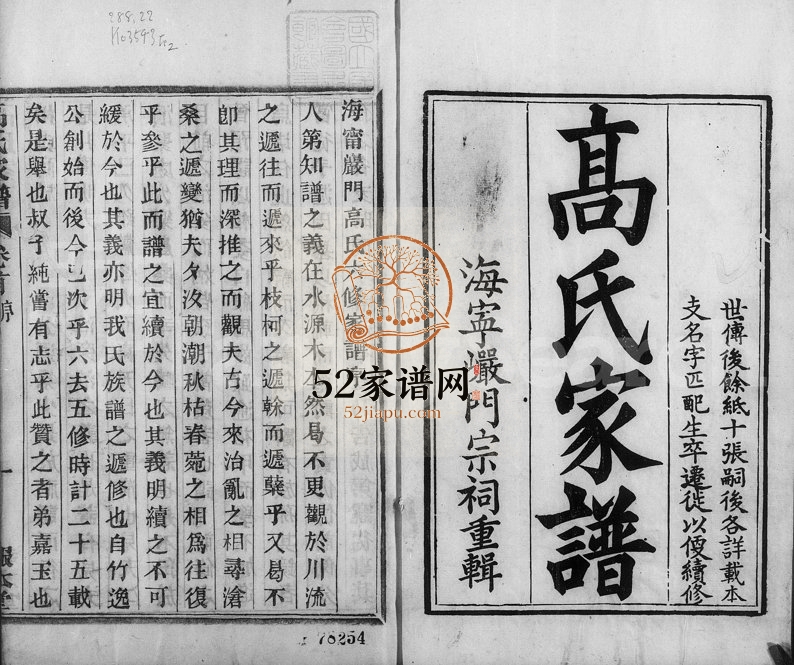 世傳後餘紙十張嗣後各詳載本
支名字匹配生卒遷徙以便續修
高氏家譜
海寧巖門宗祠重輯
海甯巖門高氏六修家譜序
人第知譜之義在水源木本然曷不更觀於川流
之遞往而遞來乎枝柯之遞榦而遞櫱乎又曷不
卽其理而深推之而觀夫古今來治亂之相尋滄
桑之遞變猶夫夕汐朝潮秋枯春菀之相爲往復
乎參乎此而譜之宜續於今也其義明續之不可
緩於今也其義亦明我氏族譜之遞修也自竹逸
公創始而後今已次乎六去五修時計二十五載
矣是舉也叔子純嘗有志乎此贊之者弟嘉玉也
高氏家譜 卷首 序
一
報本堂
288.22
78254
52家谱网
52jiapu.com